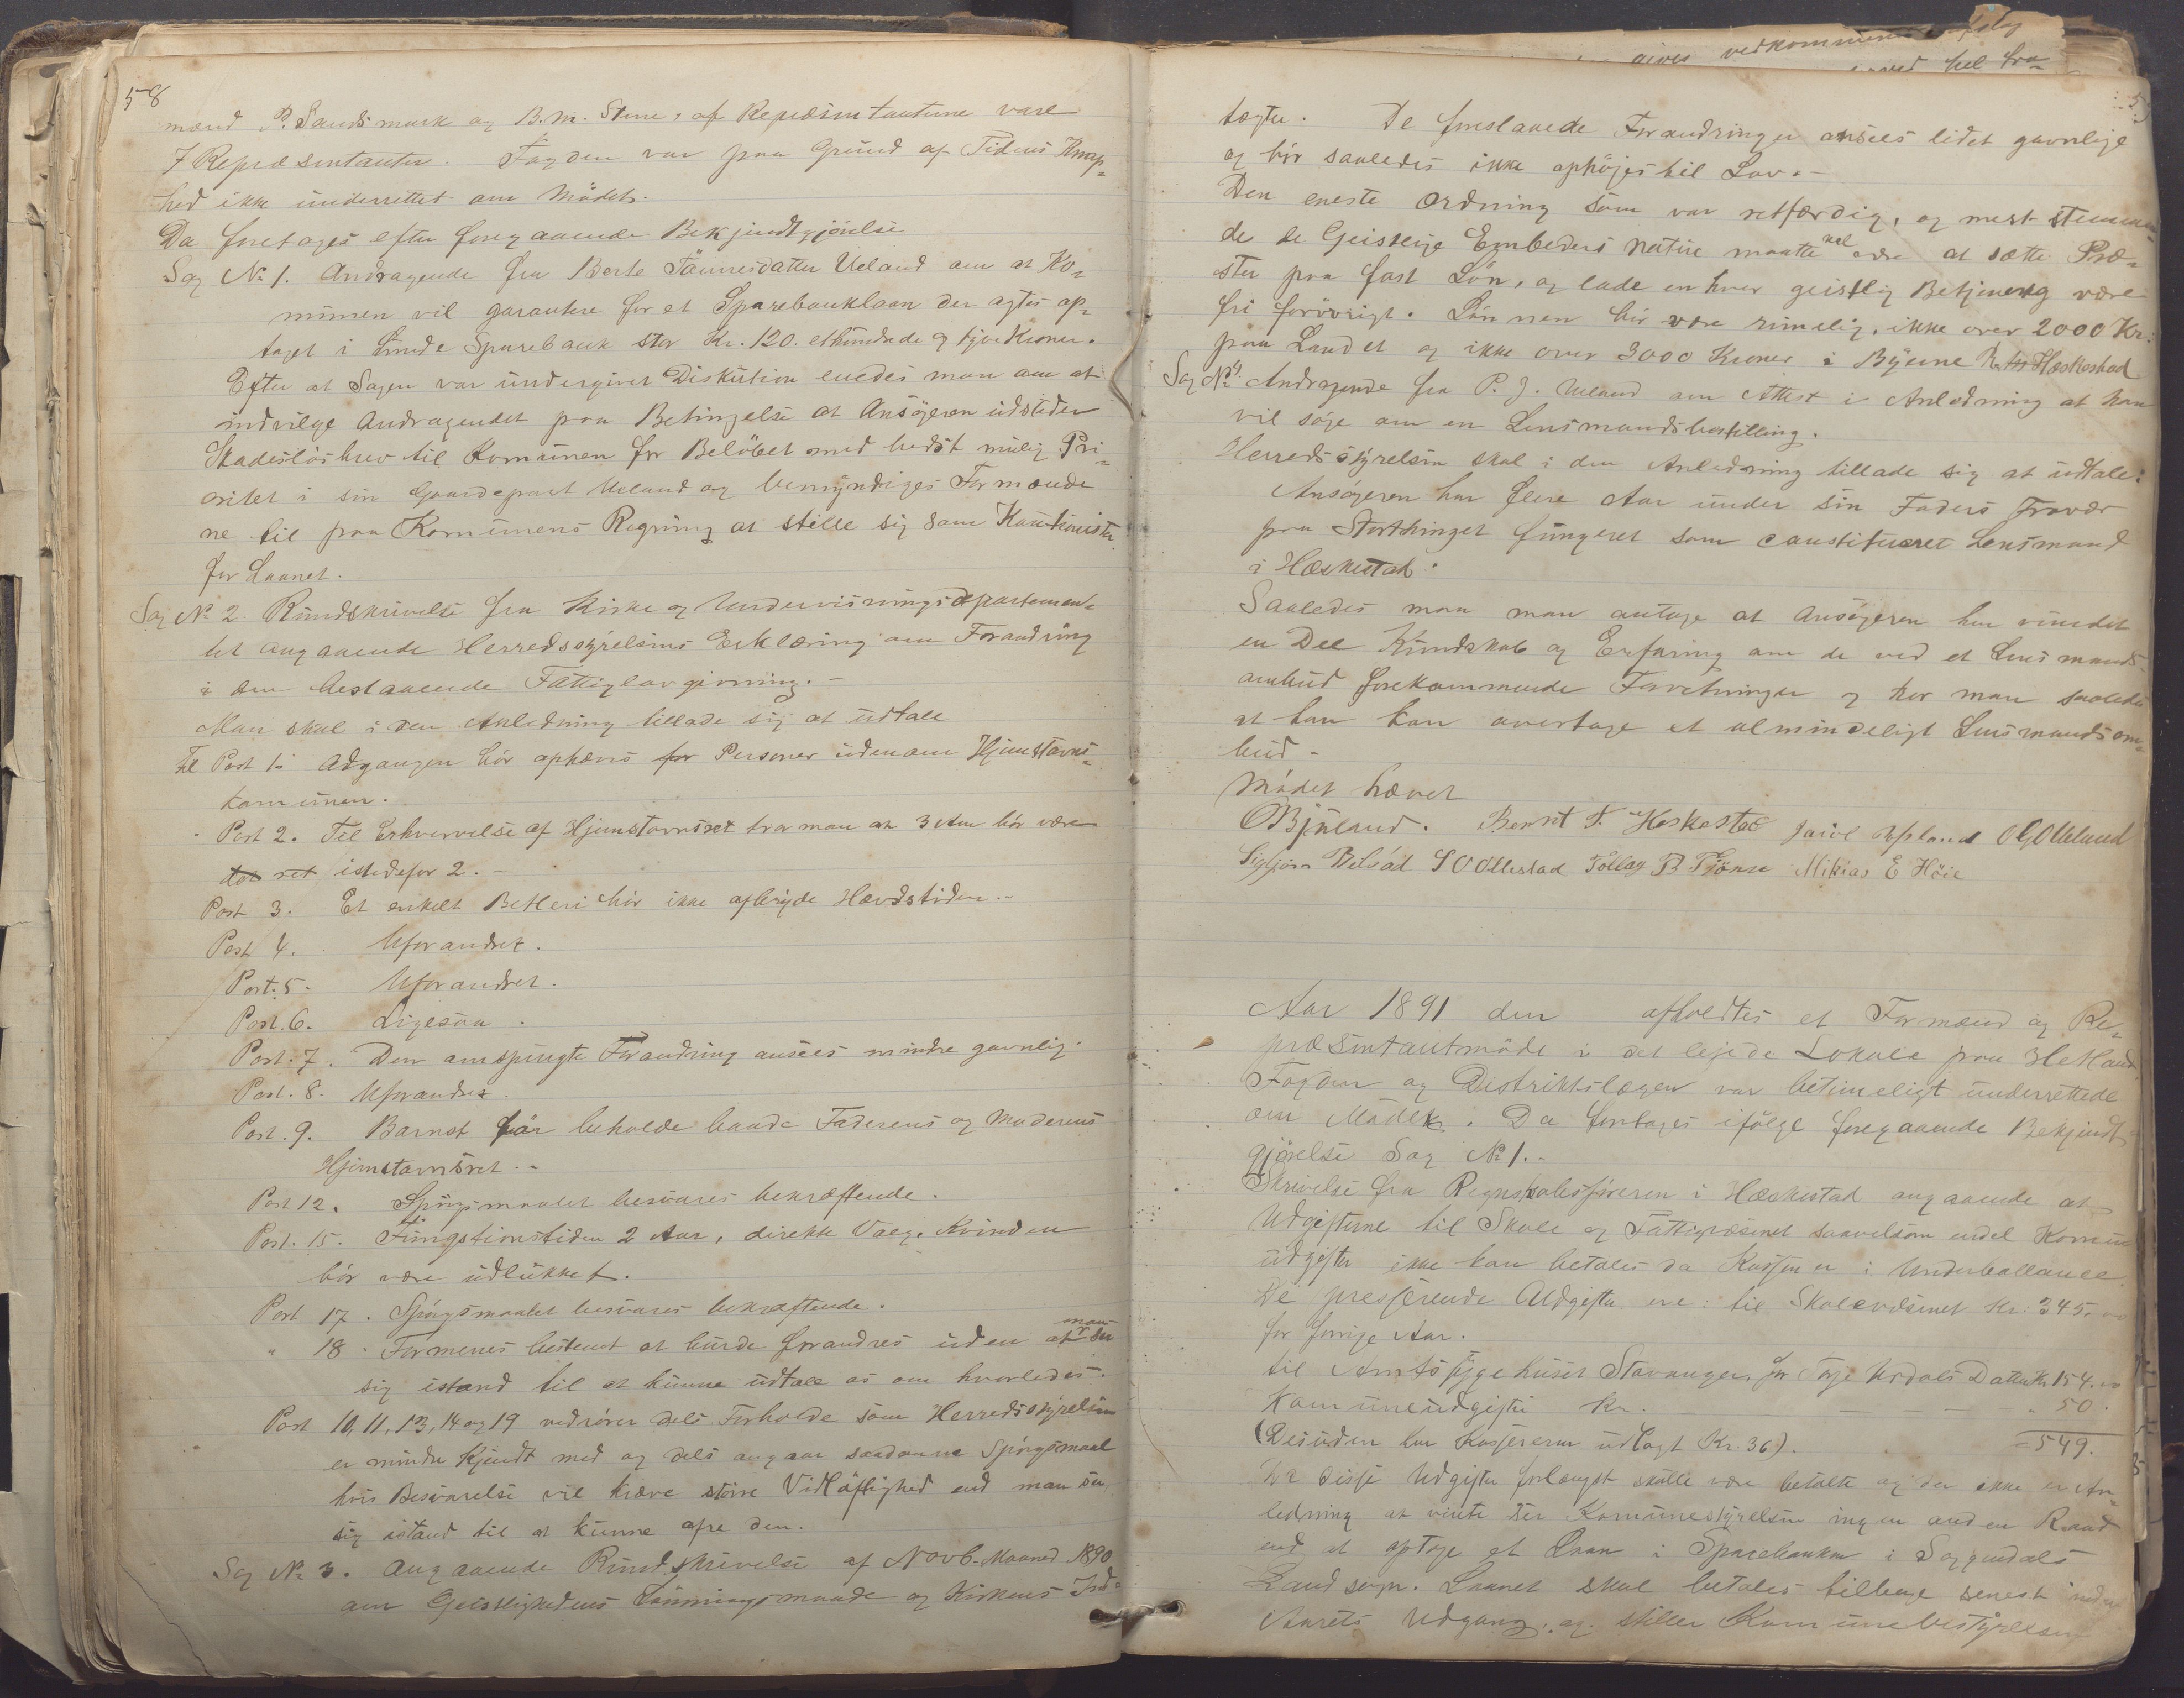 58
mænd P. Sandsmark og B. M. Stene, af Repræsentanterne vare
7 Repræsentanter. Fogden var paa Grund af Tidens Knap=
hed ikke underrettet om Mödet.
Da foretoges efter foregaaende Bekjendtgjörelse
Sag No 1. Andragende fra Berte Tönnesdatter Ueland om at Ko=
munen vil garantere for et Sparebanklaan der agtes op=
taget i Lunde Sparebank stor Kr. 120. ethundrede og tyve Kroner.
Efter at Sagen var undergivet Diskution enedes man om at
indvilge Andragendet paa Betingelse at Ansögeren udsteder
Skadeslösbrev til Komunen for Belöbet med bedst mulig Pri=
oritet i sin Gaardepart Ueland og bemyndiges Formænde
ne til paa Komunens Regning at stille sig som Kautionister
for Laanet.
Sag No 2. Rundskrivelse fra Kirke og Undervisningsdepartemen=
tet angaaende Herredsstyrelsens Erklæring om Forandring
i den bestaaende Fattiglovgivning. -
Man skal i den Anledning tillade sig at udtale
til Post 1: Adgangen bör ophæves for Personer udenom Hjemstavns=
komunen.
Post 2. Til Erhvervelse af Hjemstavnsret tror man at 3 Aar bör være
det ret istedefor 2. -
Post 3. Et enkelt Betleri bör ikke afbryde Hævdstiden. -
Post 4. Uforandret.
Post. 5. Uforandret.
Post. 6. Ligesaa.
Post. 7. Den omspurgte Forandring ansees mindre gavnlig.
Post. 8. Uforandret.
Post. 9. Barnet bör beholde baade Faderens og Moderens
Hjemstavnsret. -
Post 12. Spörgsmaalet besvares bekræftende.
Post. 15. Fungstionstiden 2 Aar, direkte Valg. Kvinden
bör være udlukket.
Post 17. Spörgsmaalet besvares bekræftende.
" 18. Formenes bestemt at burde forandres uden at man ser
sig istand til at kunne udtale os om hvorledes.
Post 10, 11, 13, 14 og 19 vedrörer dels Forholde som Herredsstyrelsen
er mindre kjendt med og dels angaar saadanne Spörgsmaal
hvis Besvarelse vil kræve större Vidtlöftighed end man ser
sig istand til at kunne afse den.
Sag No 3. Angaaende Rundskrivelse af Novb. Maaned 1890
om Geistlighedens Lönningsmaade og Kirkens Ind=
tægter. De foreslaaede Forandringer ansees lidet gavnlige
og bör saaledes ikke ophöjes til Lov. -
Den eneste Ordning som var retfærdig, og mest stemmen=
de de Geistlige Embeders Natur maatte vel være at sætte Præ=
ster paa fast Lön, og lade en hver geistlig Betjening være
fri forövrigt. Lönnen bör være rimelig, ikke over 2000 Kr:
paa Landet og ikke over 3000 Kroner i Byerne Heskestad
Sag No 4. Andragende fra P. J. Ueland om Attest i Anledning at han
vil söge om en Lensmandsbestilling.
Herredsstyrelsen skal i den Anledning tillade sig at udtale:
Ansögeren har flere Aar under sin Faders Fravær
paa Storthinget fungeret som constitueret Lensmand
i Heskestad.
Saaledes maa man antage at Ansögeren har vundet
en Del Kundskab og Erfaring om de ved et Lensmands
ombud forekommende Forretninger og tror man saaledes
at han kan overtage et almindeligt Lensmandsom=
bud -
Mödet hævet
O Bjuland. Bernt T. Heskestad Jacob Upland O G Ueland
Sigbjörn Bilstad S O Ollestad Tollag B Tjönn Mikias E Höie
Aar 1891 den afholdtes et Formænd og Re=
præsentantmöde i det lejede Lokale paa Hetland.
Fogden og Distriktslægen var betimeligt underrettede
om Mödet. Da foretoges ifölge foregaaende Bekjendt=
gjörelse Sag No 1. -
Skrivelse fra Regnskabsföreren i Heskestad angaaende at
Udgifterne til Skole og Fattigvæsenet saavelsom endel Komun
udgifter ikke kan betales da Kassen er i Underballance.
De presserende Udgifter ere: til Skolevæsenet Kr: 345.00
for forrige Aar.
til Amtssygehuset Stavanger, for Torje Urdals Datter Kr 154.00
Komuneudgifter Kr. " 50.
(Desuden har Kassereren udlagt Kr. 36). = 549.
Da disse Udgifter forlængst skulle være betalte og der ikke er An=
ledning at vente ser Komunestyrelsen ingen anden Raad
end at optage et Laan i Sparebanken i Soggendals
Landsogn. Laanet skal betales tilbage senest inden
Aarets Udgang, og stiller Komunebestyrelsen